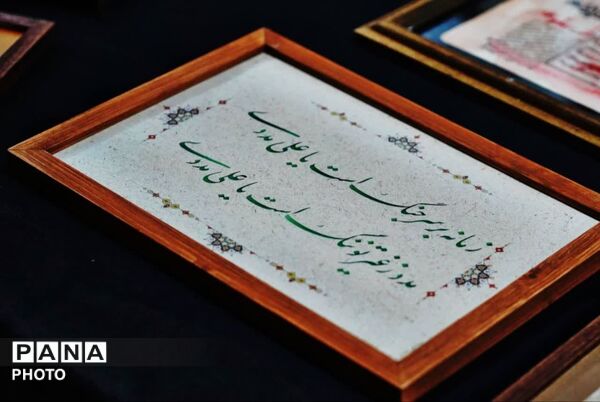 زمانه بر سر جنگ است یا علی مددی
مدد ز غیر تو ننگ است یا علی مددی
PANA
PHOTO